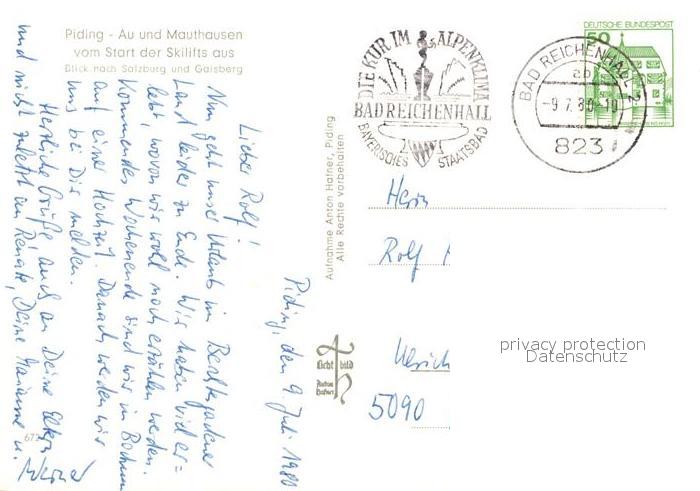 Piding - Au und Mauthausen
vom Start der Skilifts aus
Blick nach Salzburg und Gaisberg
Piding, den 9. Juli 1980
Lieber Rolf!
Nun geht unser Urlaub im Berchtesgadener
Land leider zu Ende. Wir haben viel er-
lebt, wovon wir wohl noch erzählen werden.
Kommendes Wochenende sind wir in Bochum
auf einer Hochzeit. Danach werden wir
uns bei Dir melden.
Herzliche Grüße auch an Deine Eltern
und nicht zuletzt an Renate, Deine Marianne u.
Werner
Aufnahme Anton Hafner, Piding
Alle Rechte vorbehalten
Licht bild
Anton Hafner
DIE KUR IM ALPENKLIMA
BAD REICHENHALL
BAYERISCHES STAATSBAD
BAD REICHENHALL 2
ab
-9.7.80-19
823
DEUTSCHE BUNDESPOST
50
Herrn
Rolf
5090
privacy protection
Datenschutz